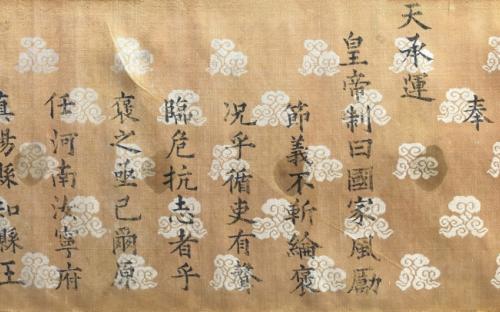 奉
天承運
皇帝制曰國家風勵
節義不靳綸褒
况乎循吏有聲
臨危抗志者乎
褒之亟已爾原
任河南汝寧府
真陽縣知縣王